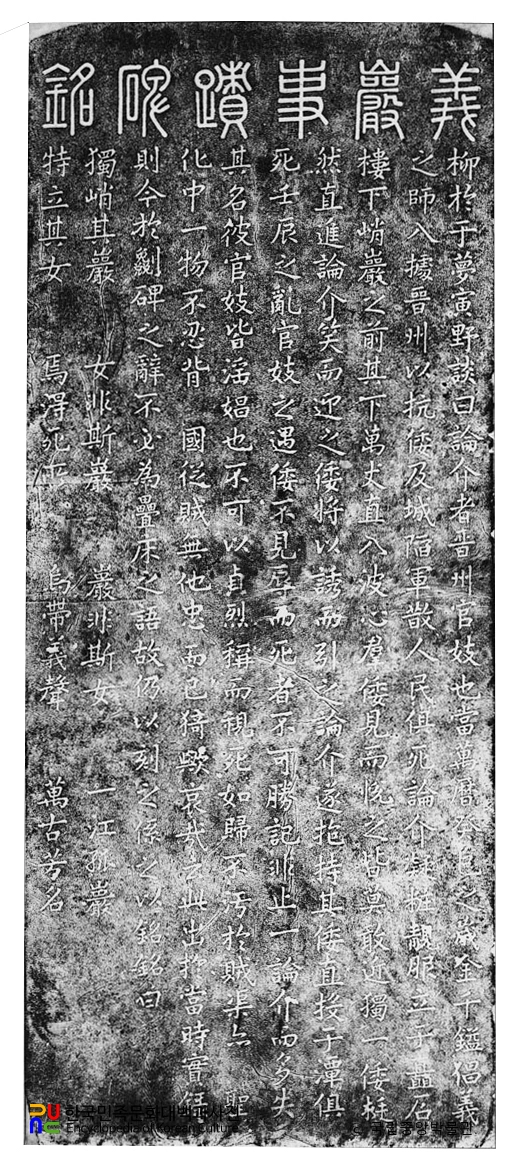 義巖事蹟碑銘
柳於于夢寅野談曰論介者晋州官妓也當萬曆癸巳之歲金千鎰倡義
之師入據晋州以抗倭及城陷軍散人民俱死論介凝粧靚服立于矗石
樓下峭巖之前其下萬丈直入波心羣倭見而悅之皆莫敢近獨一倭挺
然直進論介笑而迎之倭將以誘而引之論介遂抱持其倭直投于潭俱
死壬辰之亂官妓之遇倭不見辱而死者不可勝記非止一論介而多失
其名彼官妓皆淫娼也不可以貞烈稱而視死如歸不汚於賊渠亦 聖
化中一物不忍背 國從賊無他忠而已猗歟哀哉云此出於當時實錄
則今於劖碑之辭不必為疊床之語故仍以刻之係之以銘銘曰
獨峭其巖 女非斯巖 巖非斯女 一江孤巖
特立其女 焉得死 烏帶義聲 萬古芳名
한국민족문화대백과사전
Encyclopedia of Korean Culture
국립중앙박물관